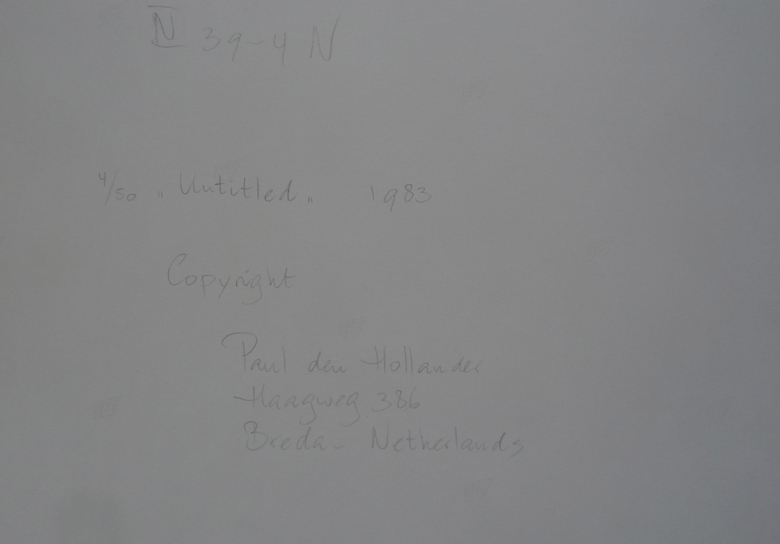 N 39-4 N
4/50 „Untitled„ 1983
Copyright
Paul den Hollander
Haagweg 386
Breda - Netherlands